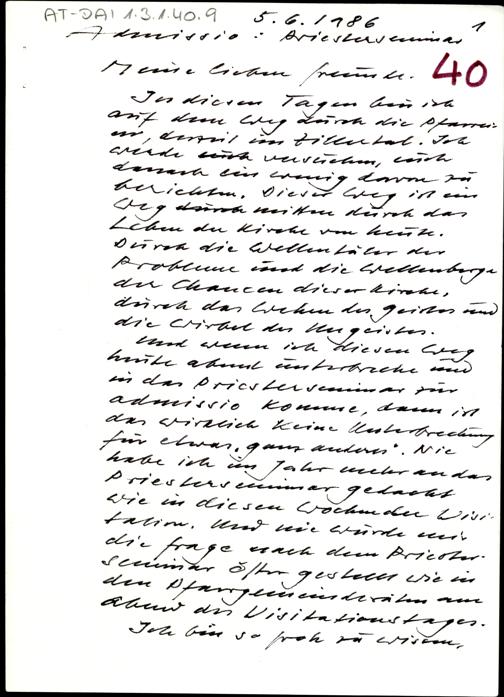 AT-DAI 1.3.1.40.9
5.6.1986
1
Admissio : Priesterseminar
40
Meine lieben Freunde.
In diesen Tagen bin ich
auf dem Weg durch die Pfarrei-
en, derzeit im Zillertal. Ich
werde noch versuchen, euch
danach ein wenig davon zu
berichten. Dieser Weg ist ein
Weg durch mitten durch das
Leben der Kirche von heute.
Durch die Wellentäler der
Probleme und die Wellenberge
der Chancen dieser Kirche,
durch das Wehen des Geistes und
die Wirbel des Ungeistes.
Und wenn ich diesen Weg
heute abend unterbreche und
in das Priesterseminar zur
admissio komme, dann ist
das wirklich keine Unterbrechung
für etwas „ganz anderes". Nie
habe ich im Jahr mehr an das
Priesterseminar gedacht
wie in diesen Wochen der Visi-
tation. Und nie wurde mir
die Frage nach dem Priester-
seminar öfter gestellt wie in
den Pfarrgemeinderäten am
Abend des Visitationstages.
Ich bin so froh zu wissen,